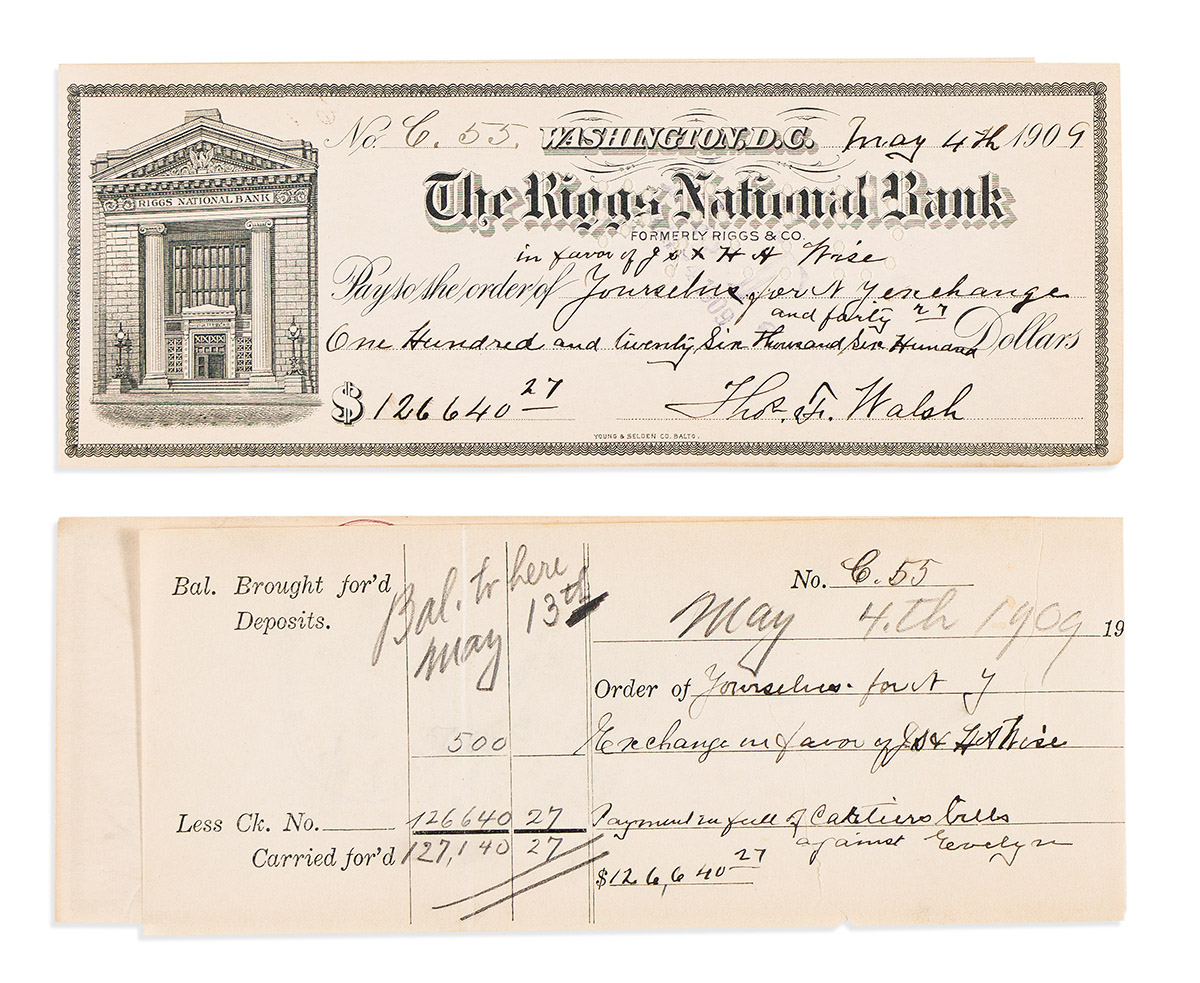 No. C. 55. WASHINGTON, D.C. May 4th 1909
RIGGS NATIONAL BANK
The Riggs National Bank
FORMERLY RIGGS & CO.
in favor of J S & H A Wise
Pay to the order of Yourselves, for N Y exchange
and forty 27
One Hundred and twenty Six Thousand Six Hundred Dollars
$ 126640 27 Thos. F. Walsh
YOUNG & SELDEN CO. BALTO.
Bal. Brought for'd
Deposits.
Bal. to here
May 13th
No. C. 55
May 4.th 1909 19
Order of Yourselves. for N Y
500 Exchange in favor of J S & H A Wise
Less Ck. No. 126640 27 Payment in full of Cartiers bills
against Evelyn
Carried for'd 127,140 27
$126,640 27